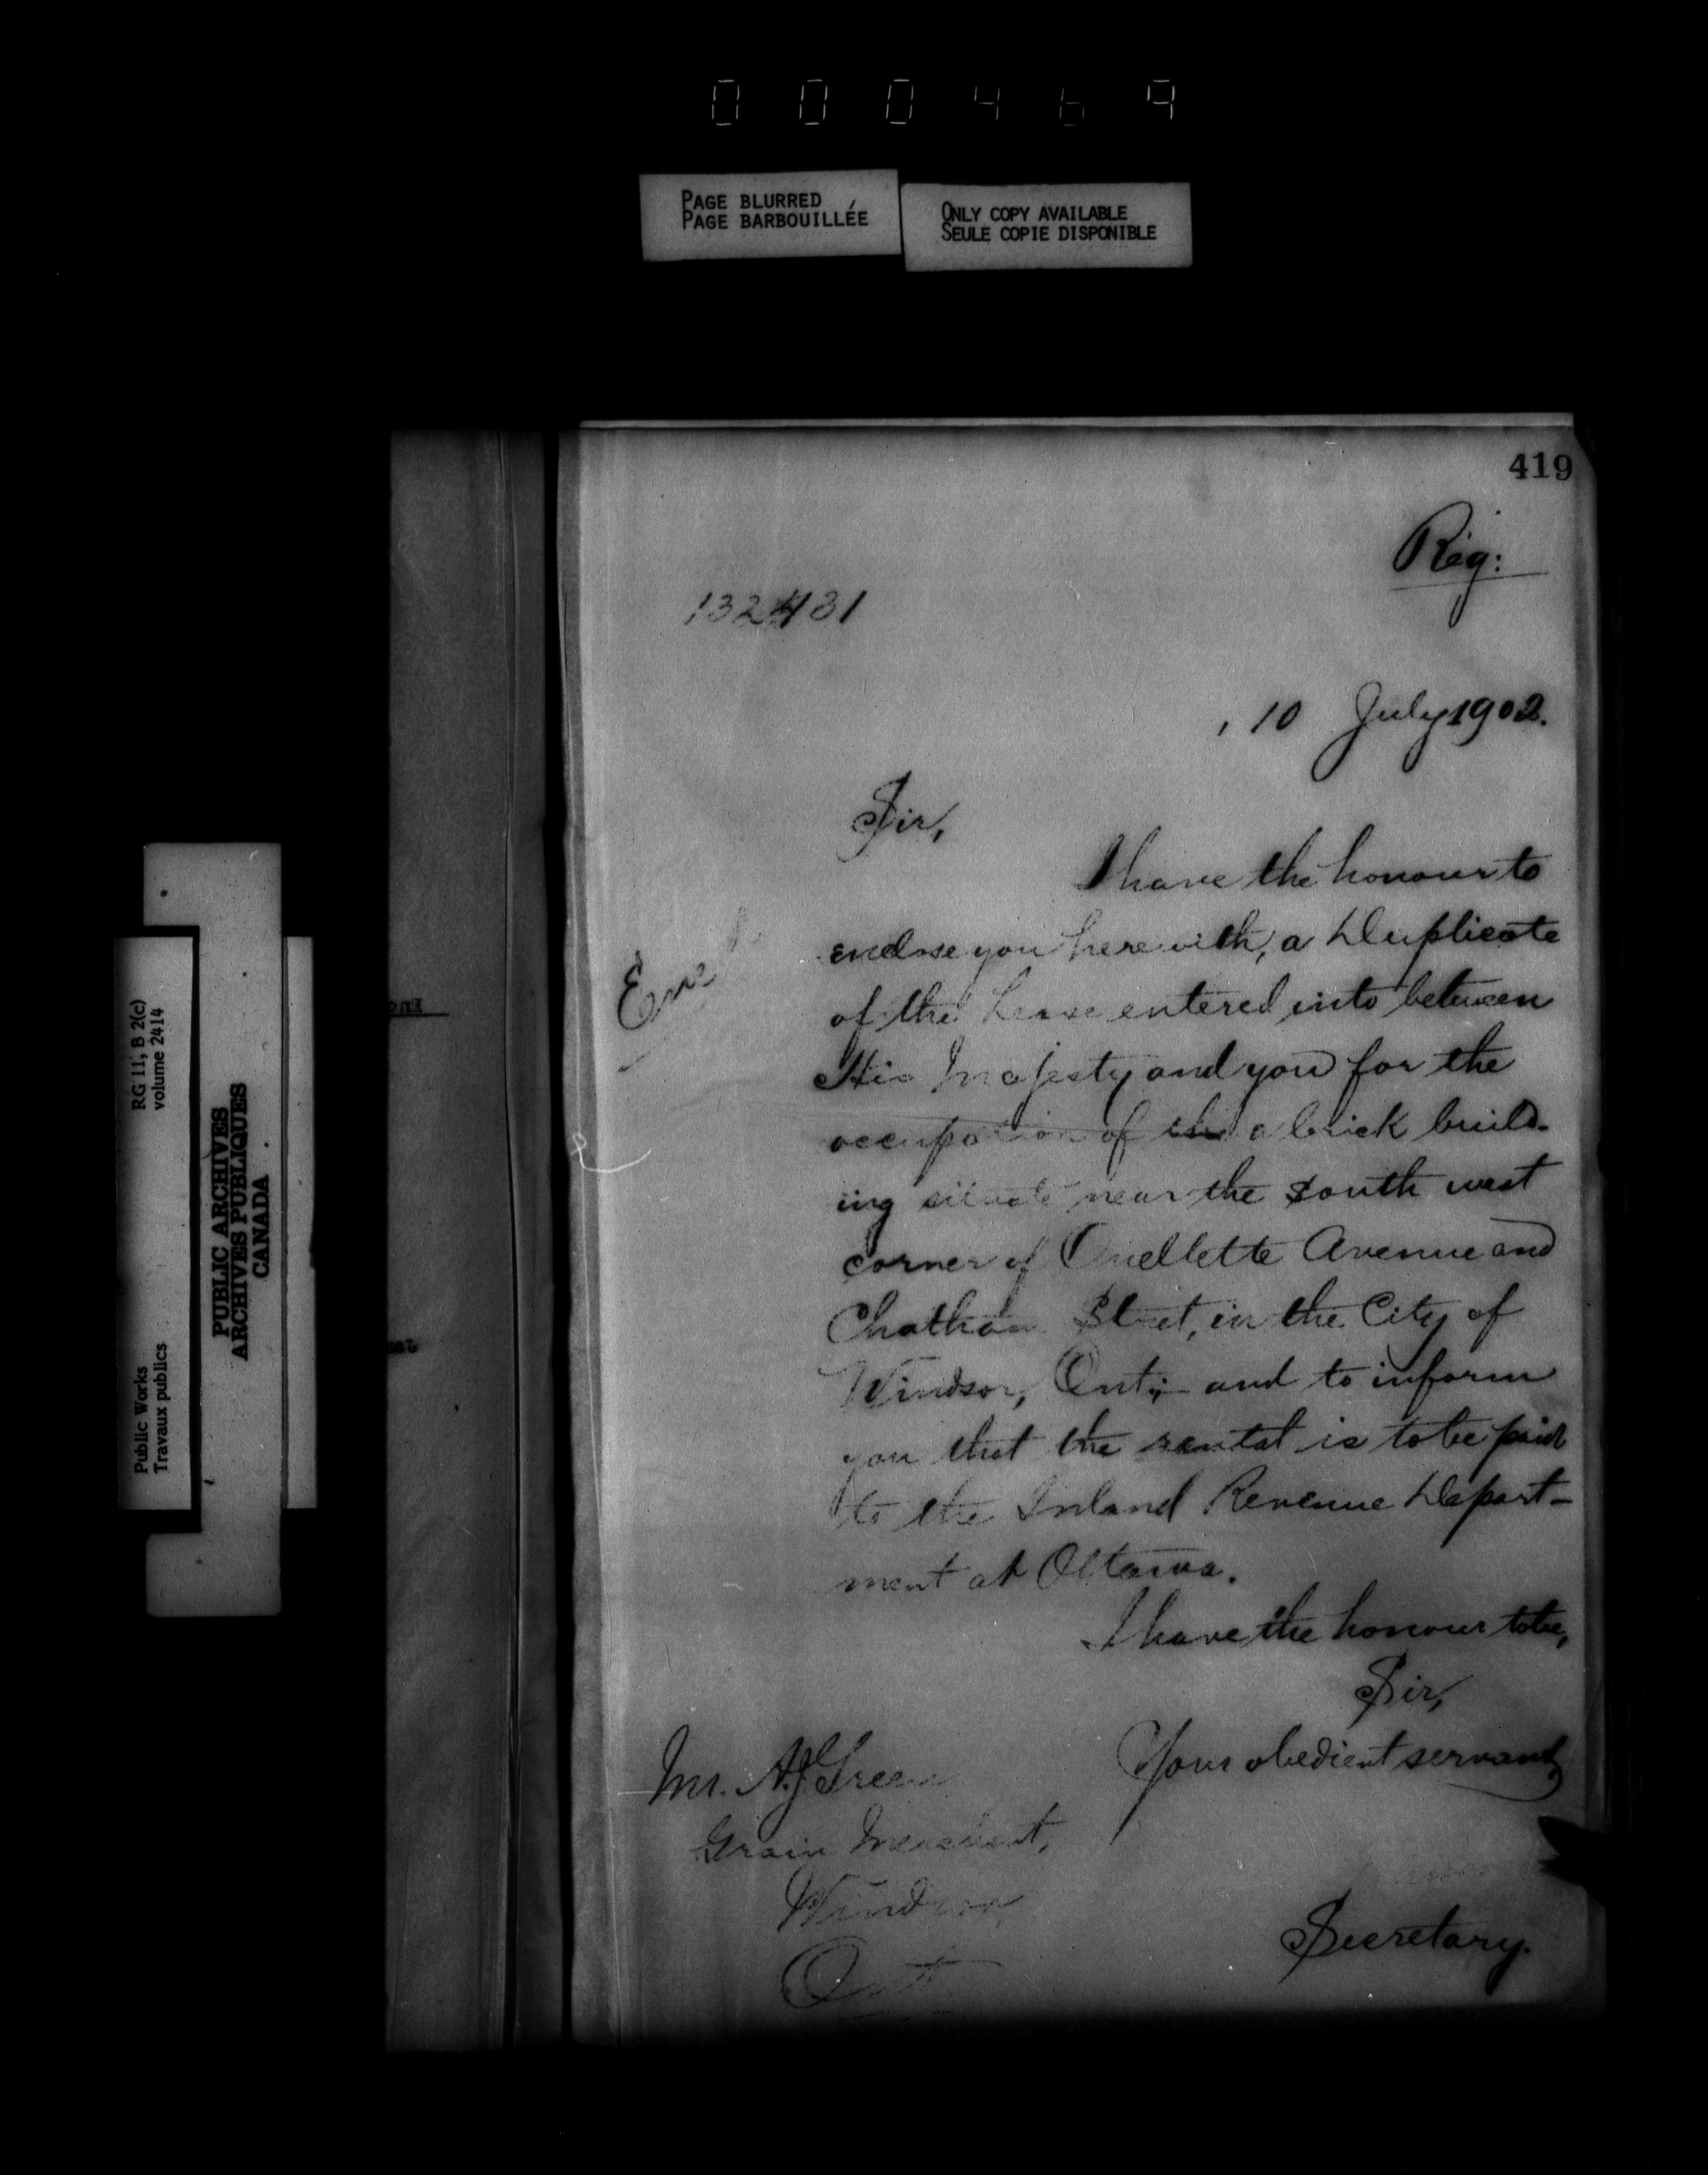 000469
PAGE BLURRED
PAGE BARBOUILLÉE
ONLY COPY AVAILABLE
SEULE COPIE DISPONIBLE
419
Reg:
132431
, 10 July 1902.
Sir,
I have the honour to
enclose you herewith, a Duplicate
of the Lease entered into between
His Majesty and you for the
occupation of the a brick build-
ing situate near the South west
corner of Ouellette Avenue and
Chatham Street, in the City of
Windsor, Ont; - and to inform
you that the rental is to be paid
to the Inland Revenue Depart-
ment at Ottawa.
I have the honour to be,
Sir,
Your obedient servant,
Mr. A.J. Green
Grain Merchant,
Windsor,
Ont
Secretary.
RG 11, B 2(c)
volume 2414
Public Works
Travaux publics
PUBLIC ARCHIVES
ARCHIVES PUBLIQUES
CANADA